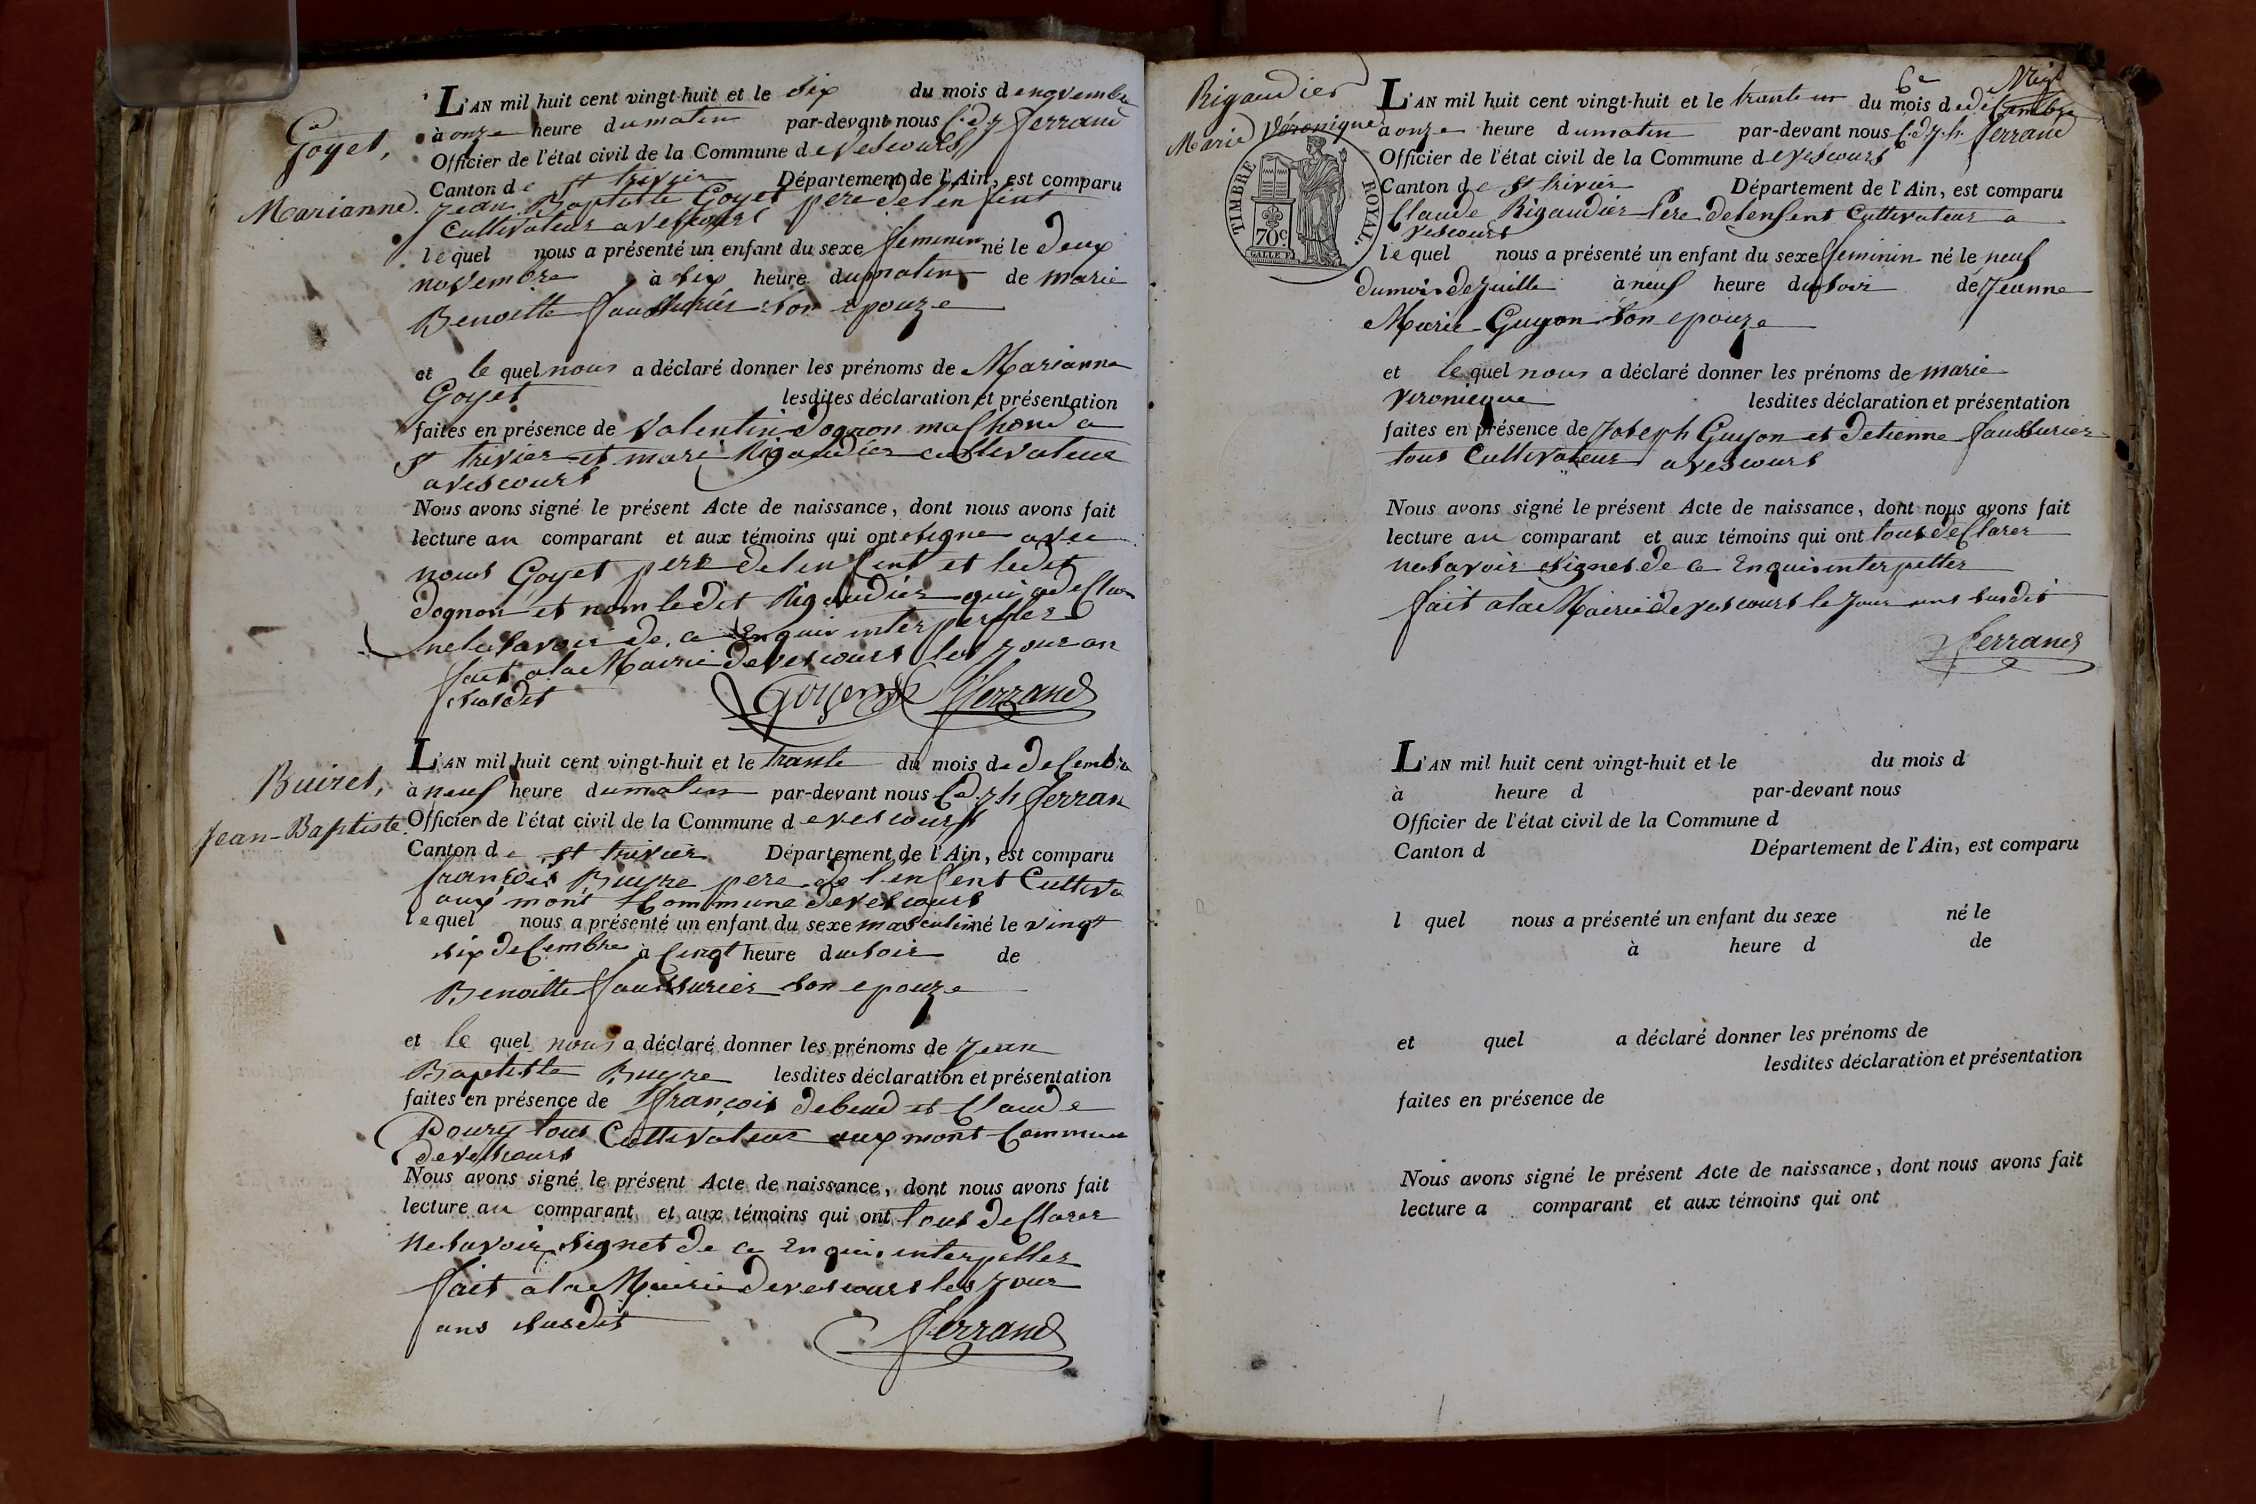 Goyet,
Marianne.
L'AN mil huit cent vingt-huit et le six du mois de novembre
à onze heure du matin par-devant nous C.d J. ferrand
Officier de l'état civil de la Commune de vescours
Canton de st trivier Département de l'Ain, est comparu
jean Baptiste Goyet pere de lenfent
Cultivateur a vescours
le quel nous a présenté un enfant du sexe feminin né le deux
novembre à six heure du matin de marie
Benoitte faussurier son epouze
et le quel nous a déclaré donner les prénoms de Marianne
Goyet lesdites déclaration et présentation
faites en présence de Valentin dognon a
st trivier et Rigaudier cultivateur
a vescours
Nous avons signé le présent Acte de naissance, dont nous avons fait
lecture au comparant et aux témoins qui ont signe avec
nous Goyet pere de lenfent et ledit
dognon et nom ledit Rigaudier qui
ne le savoir de ce Enquis
fait a la Mairie de vescours les jour an
susdit
Goyet ferrand
Buiret,
Jean-Baptiste.
L'AN mil huit cent vingt-huit et le trante du mois de decembre
à neuf heure du matin par-devant nous C.d j.h ferran
Officier de l'état civil de la Commune de vescours
Canton de st trivier Département de l'Ain, est comparu
françois Buyre pere de lenfent Cultiva
aux mont Commune de vescours
le quel nous a présenté un enfant du sexe masculin né le vingt
six decembre à Cingt heure du soir de
Benoitte faussurier son epouze
et le quel nous a déclaré donner les prénoms de jean
Baptiste Buyre lesdites déclaration et présentation
faites en présence de françois debeud et Claude
Poury tous Cultivateur aux mont Commune
de vescours
Nous avons signé le présent Acte de naissance, dont nous avons fait
lecture au comparant et aux témoins qui ont tous declarer
ne savoir signet de ce Enquis interpeller
fait a la Mairie de vescours les jour
ans susdit
ferrand
Rigaudier
Marie Véronique
TIMBRE ROYAL.
70c
6e
L'AN mil huit cent vingt-huit et le trante un du mois de decembre
à onze heure du matin par-devant nous C.d j.h. ferrand
Officier de l'état civil de la Commune de vescours
Canton de st trivier Département de l'Ain, est comparu
Claude Rigaudier Pere de lenfent Cultivateur a
vescours
le quel nous a présenté un enfant du sexe feminin né le neuf
du mois de Juille à neuf heure du soir de Jeanne
Marie Guyon son epouze
et le quel nous a déclaré donner les prénoms de marie
veronicque lesdites déclaration et présentation
faites en présence de Joseph Guyon et detienne faussurier
tous Cultivateur a vescours
Nous avons signé le présent Acte de naissance, dont nous avons fait
lecture au comparant et aux témoins qui ont tous declarer
ne savoir signet de ce Enquis interpeller
fait a la Mairie de vescours le jour ans susdit
ferrand
L'AN mil huit cent vingt-huit et le du mois d
à heure d par-devant nous
Officier de l'état civil de la Commune d
Canton d Département de l'Ain, est comparu
l quel nous a présenté un enfant du sexe né le
à heure d de
et quel a déclaré donner les prénoms de
lesdites déclaration et présentation
faites en présence de
Nous avons signé le présent Acte de naissance, dont nous avons fait
lecture a comparant et aux témoins qui ont